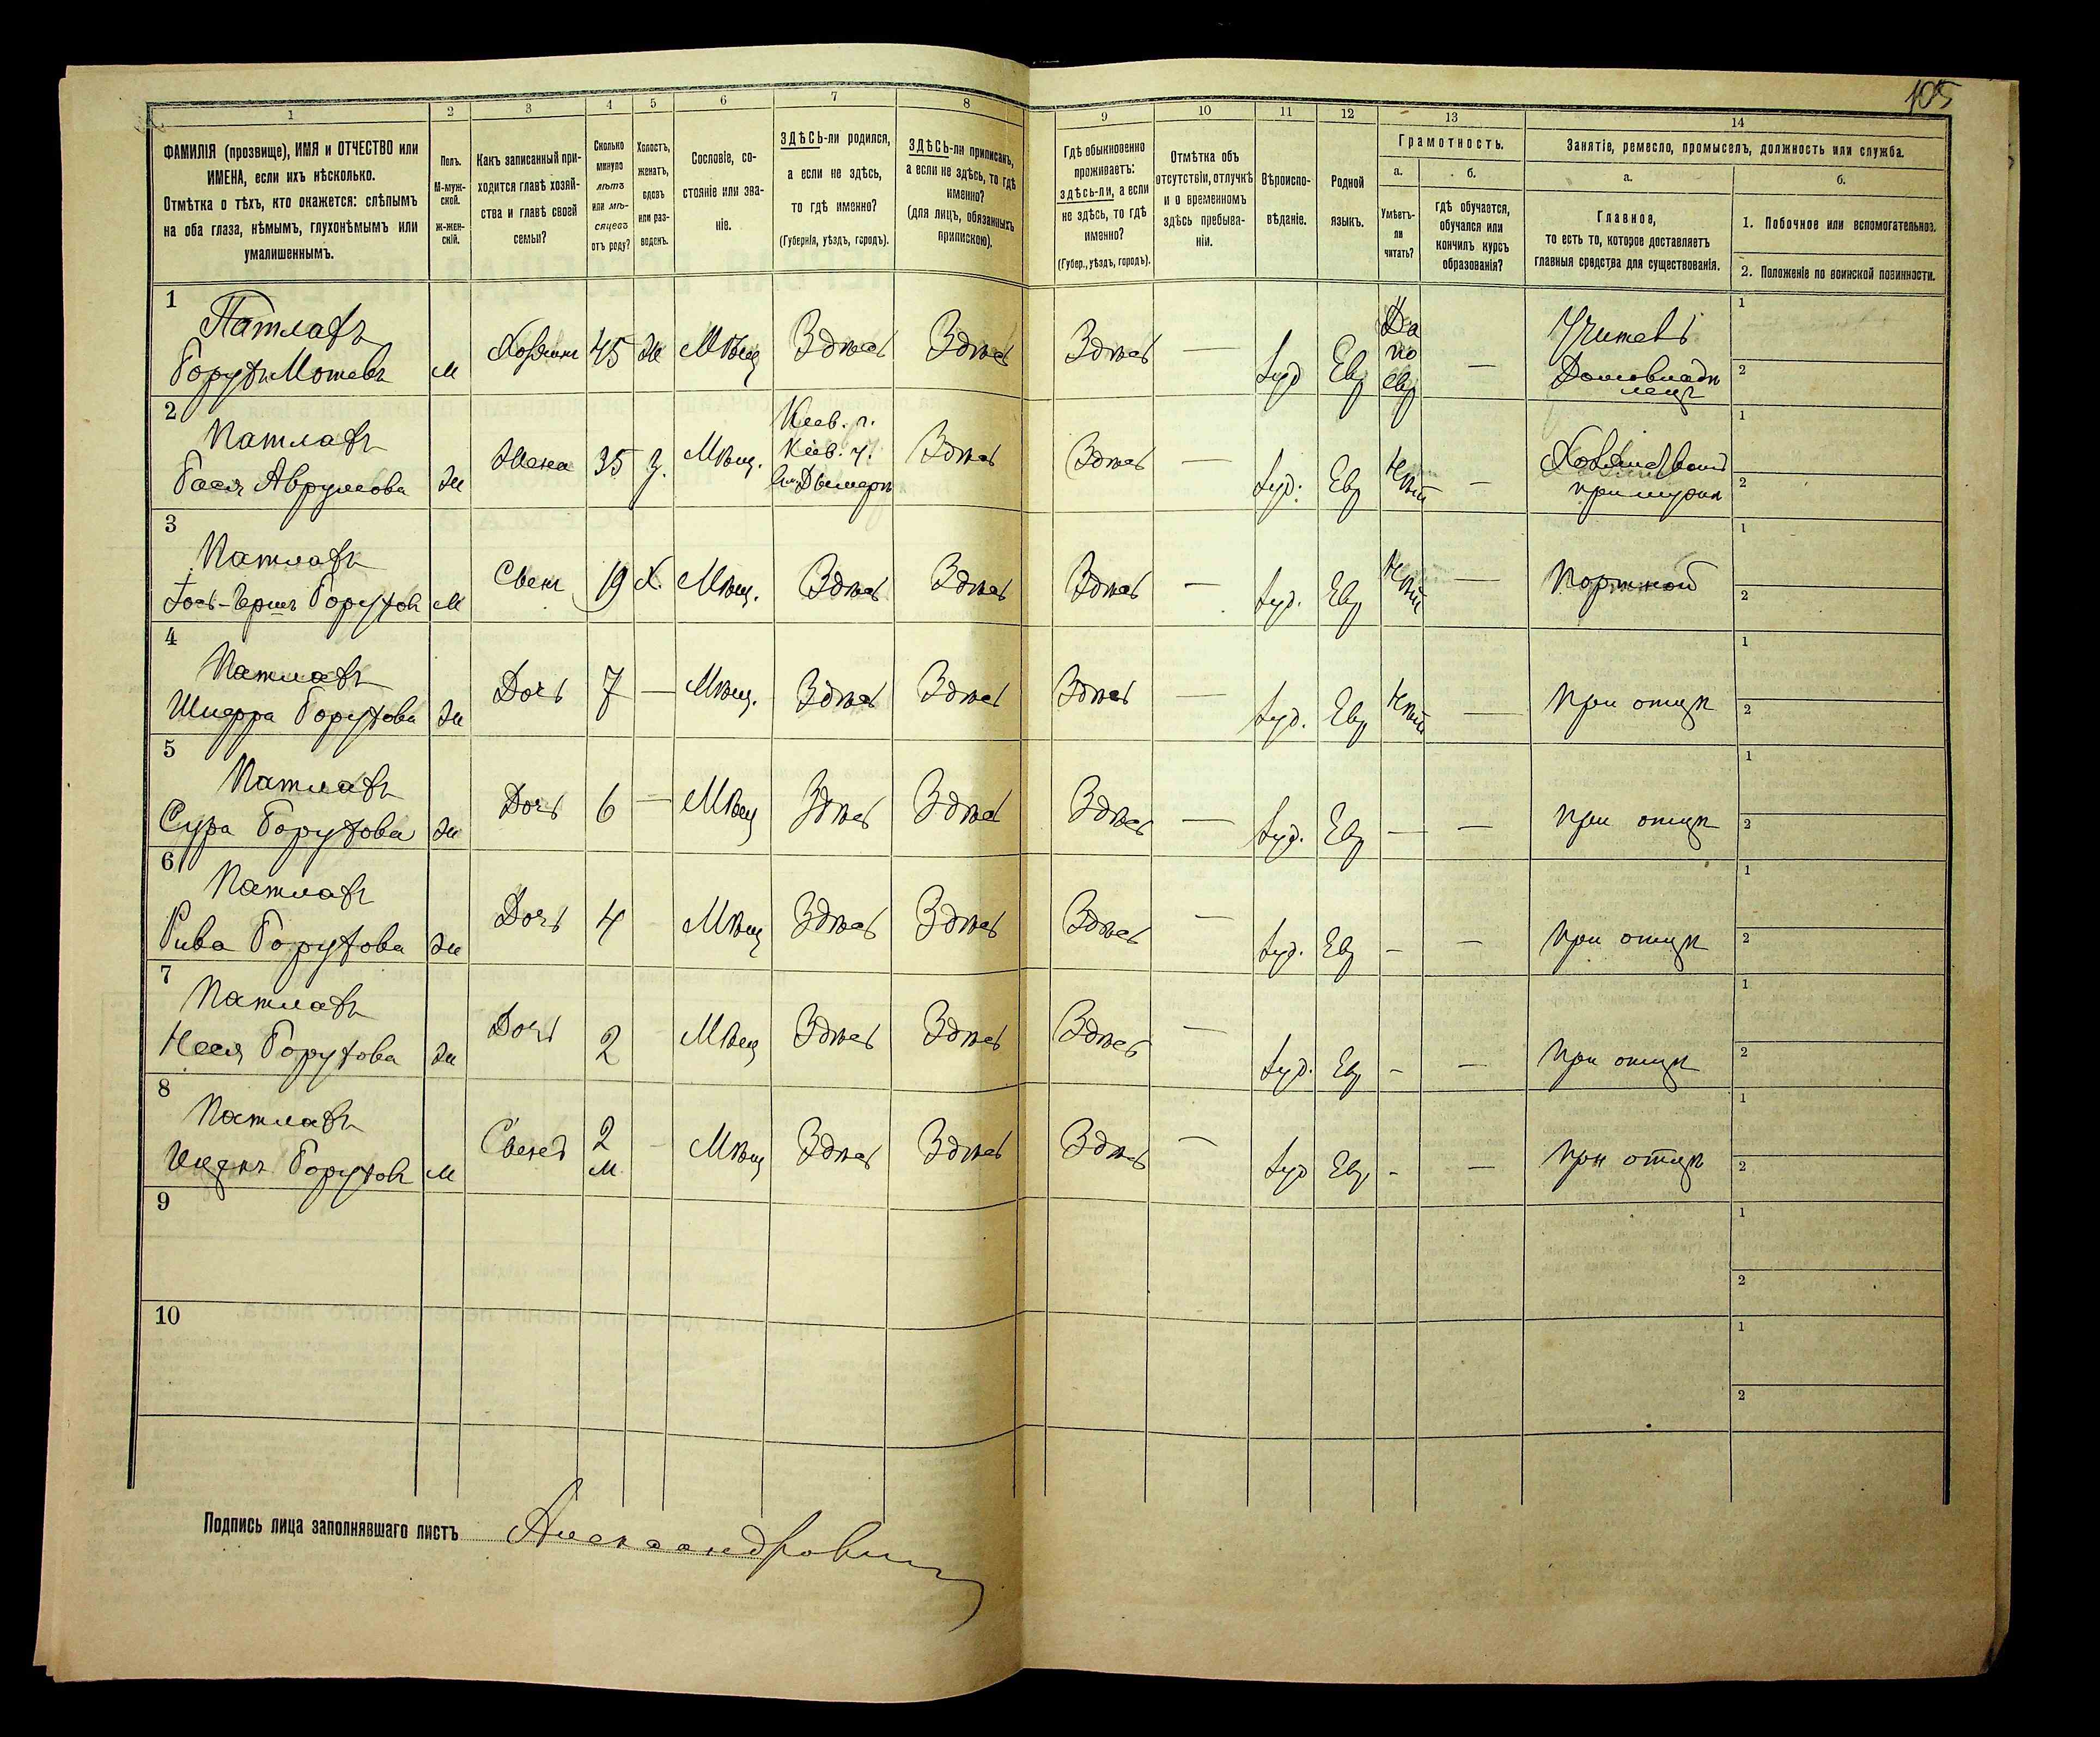 105
1
2
3
4
5
6
7
8
9
10
11
12
13
14
ФАМИЛІЯ (прозвище), ИМЯ и ОТЧЕСТВО или
ИМЕНА, если ихъ нѣсколько.
Отмѣтка о тѣхъ, кто окажется: слѣпымъ
на оба глаза, нѣмымъ, глухонѣмымъ или
умалишеннымъ.
Полъ.
М-муж-
ской.
ж-жен-
скій.
Какъ записанный при-
ходится главѣ хозяй-
ства и главѣ своей
семьи?
Сколько
минуло
лѣтъ
или мѣ-
сяцевъ
отъ роду?
Холостъ,
женатъ,
вдовъ
или раз-
веденъ.
Сословіе, со-
стояніе или зва-
ніе.
ЗДѢСЬ-ли родился,
а если не здѣсь,
то гдѣ именно?
(Губернія, уѣздъ, городъ).
ЗДѢСЬ-ли приписанъ,
а если не здѣсь, то гдѣ
именно?
(для лицъ, обязанныхъ
припискою).
Гдѣ обыкновенно
проживаетъ:
здѣсь-ли, а если
не здѣсь, то гдѣ
именно?
(Губер., уѣздъ, городъ).
Отмѣтка объ
отсутствіи, отлучкѣ
и о временномъ
здѣсь пребыва-
ніи.
Вѣроиспо-
вѣданіе.
Родной
языкъ.
Грамотность.
а.
б.
Умѣетъ-
ли
читать?
гдѣ обучается,
обучался или
кончилъ курсъ
образованія?
Занятіе, ремесло, промыселъ, должность или служба.
а.
б.
Главное,
то есть то, которое доставляетъ
главныя средства для существованія.
1. Побочное или вспомогательное.
2. Положеніе по воинской повинности.
1
Патлахъ
Борухъ Мошевъ
м
Хозяинъ
45
Ж
Мѣщ
Здѣсь
Здѣсь
Здѣсь
—
Іуд
Евр
Да
по
евр
—
Учитель
Домовладѣ
лецъ
1
2
2
Патлахъ
Бася Аврумова
ж
Жена
35
З.
Мѣщ.
Кіев. г.
Кіев. у.
м. Дымеръ
Здѣсь
Здѣсь
—
Іуд.
Евр
Нѣт
—
при мужѣ
1
2
3
Патлахъ
Іось-Гершъ Боруховъ
м
Сынъ
19
Х.
Мѣщ.
Здѣсь
Здѣсь
Здѣсь
—
Іуд.
Евр
Нѣт
—
Портной
1
2
4
Патлахъ
Шифра Борухова
ж
Дочь
7
—
Мѣщ.
Здѣсь
Здѣсь
Здѣсь
—
Іуд.
Евр
Нѣт
—
При отцѣ
1
2
5
Патлахъ
Сура Борухова
ж
Дочь
6
—
Мѣщ
Здѣсь
Здѣсь
Здѣсь
—
Іуд.
Евр
—
—
При отцѣ
1
2
6
Патлахъ
Рива Борухова
ж
Дочь
4
-
Мѣщ
Здѣсь
Здѣсь
Здѣсь
—
Іуд.
Евр
-
—
При отцѣ
1
2
7
Патлахъ
Неся Борухова
ж
Дочь
2
-
Мѣщ
Здѣсь
Здѣсь
Здѣсь
—
Іуд.
Евр
-
—
При отцѣ
1
2
8
Патлахъ
Ицекъ Боруховъ
м
Сынъ
2
м
-
Мѣщ
Здѣсь
Здѣсь
Здѣсь
—
Іуд
Евр
-
—
При отцѣ
1
2
9
1
2
10
1
2
Подпись лица заполнявшаго листъ